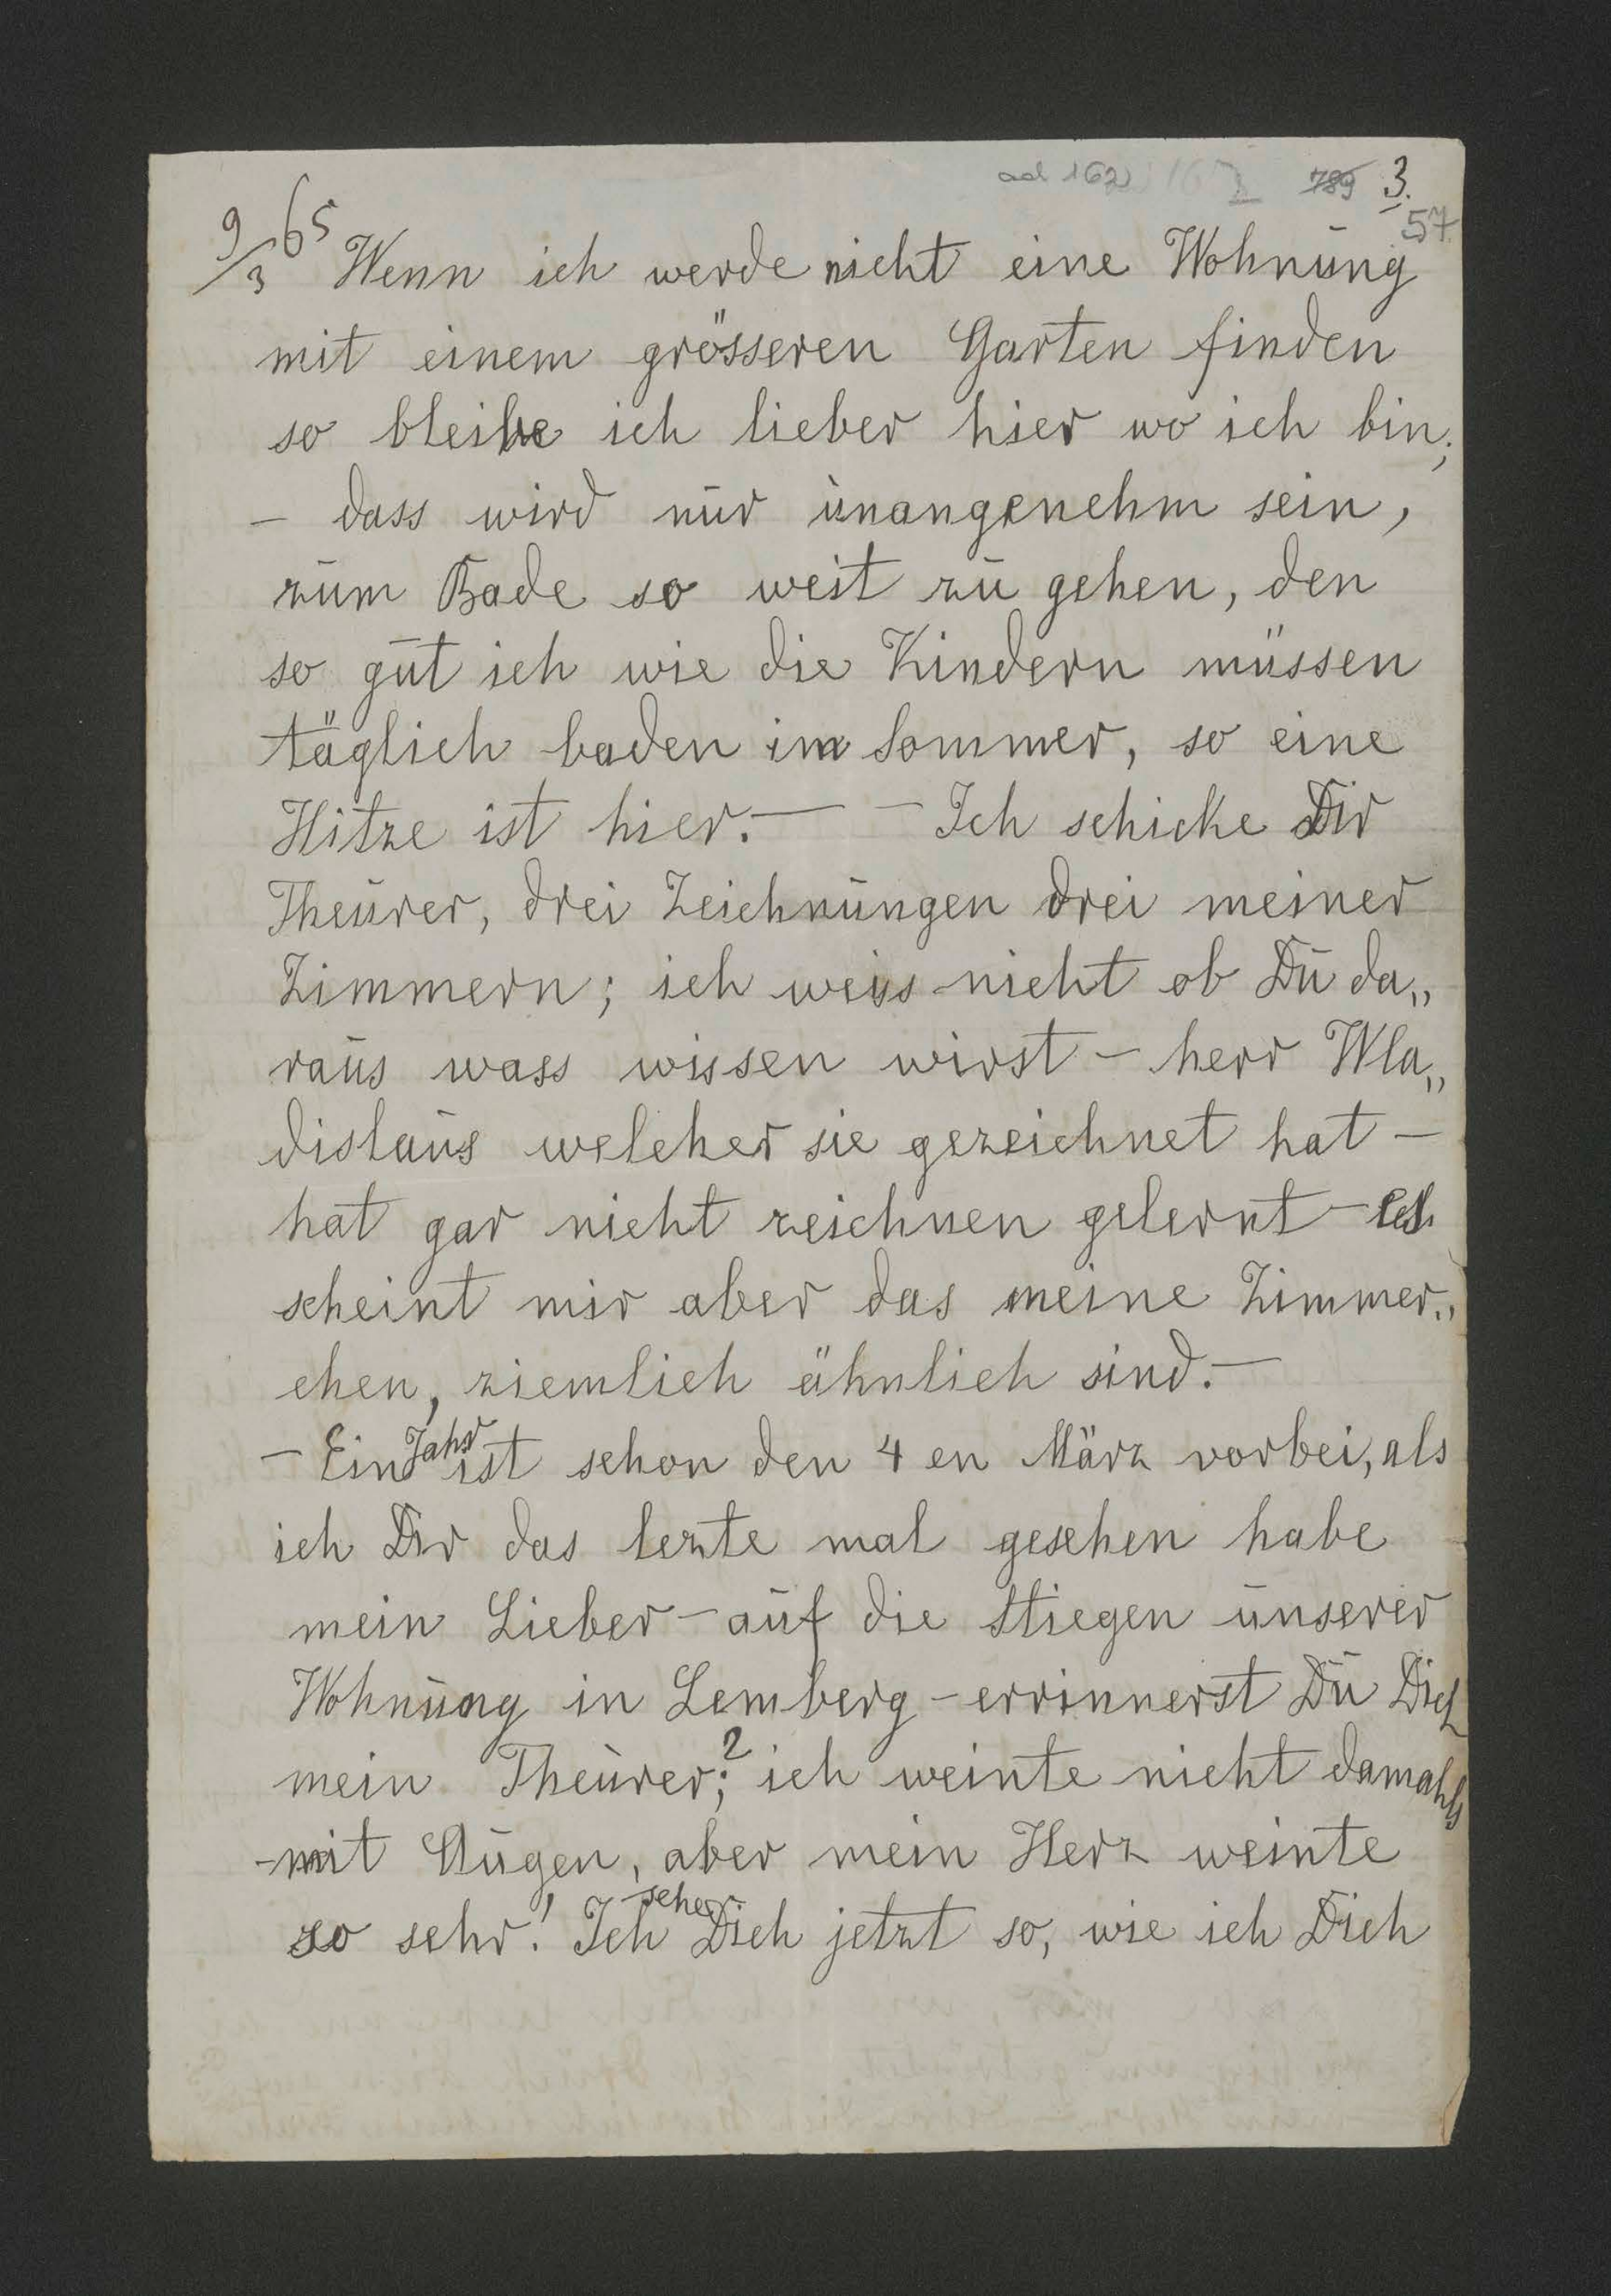 ad 162 789 3.
57
9/3 65 Wenn ich werde nicht eine Wohnung
mit einem grösseren Garten finden
so bleibe ich lieber hier wo ich bin;
– dass wird nur unangenehm sein,
zum Bade so weit zu gehen, den
so gut ich wie die Kindern müssen
täglich baden im Sommer, so eine
Hitze ist hier. — – Ich schicke Dir
Theurer, drei Zeichnungen drei meiner
Zimmern; ich weiss nicht ob Du da„
raus wass wissen wirst – herr Wla„
dislaus welcher sie gezeichnet hat –
hat gar nicht zeichnen gelernt – es
scheint mir aber das meine Zimmer„
chen, ziemlich ähnlich sind. —
– Ein Jahr ist schon den 4 en März vorbei, als
ich Dir das lezte mal gesehen habe
mein Lieber – auf die Stiegen unserer
Wohnung in Lemberg – errinnerst Du Dich
mein Theurer;? ich weinte nicht damahls
– mit Augen, aber mein Herz weinte
so sehr! Ich sehe Dich jetzt so, wie ich Dich